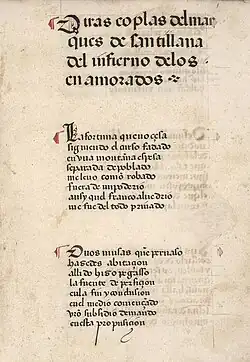 Otras coplas del mar
ques de santillana
del infierno delos
en amorados
La fortuna que no çesa
siguiendo el curso fadado
en vna montaña espesa
separada de poblado
me leuo como robado
fuera de mi poderio
ansy quel franco aluedrio
me fue del todo priuado
O vos musas que en pernaso
hasedes abitaçion
alli do hiso pegasso
la fuente de perfiçion
en la fin y conclusion
en el medio començando
vr̃o subsidio demando
en esta propusiçion